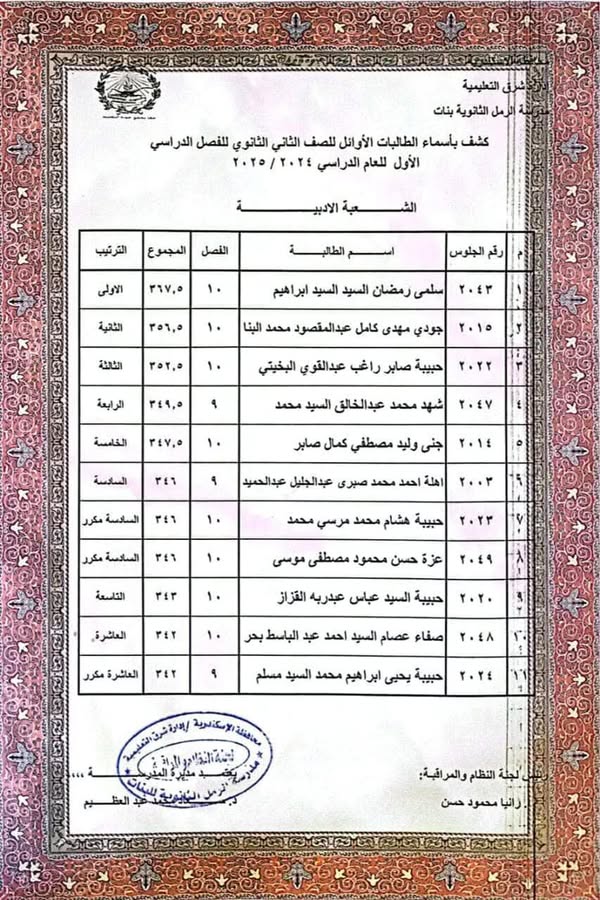 شرق التعليمية
مدرسة الرمل الثانوية بنات
كشف بأسماء الطالبات الأوائل للصف الثاني الثانوي للفصل الدراسي
الأول للعام الدراسي ٢٠٢٤ / ٢٠٢٥
الشـــــعبة الادبيـــــــة
م رقم الجلوس اســـم الطالبـــة الفصل المجموع الترتيب
١ ٢٠٤٣ سلمى رمضان السيد السيد ابراهيم ١٠ ٣٦٧,٥ الاولى
٢ ٢٠١٥ جودي مهدى كامل عبدالمقصود محمد البنا ١٠ ٣٥٦,٥ الثانية
٣ ٢٠٢٢ حبيبة صابر راغب عبدالقوي البخيتي ١٠ ٣٥٢,٥ الثالثة
٤ ٢٠٤٧ شهد محمد عبدالخالق السيد محمد ٩ ٣٤٩,٥ الرابعة
٥ ٢٠١٤ جنى وليد مصطفي كمال صابر ١٠ ٣٤٧,٥ الخامسة
٦ ٢٠٠٣ اهلة احمد محمد صبرى عبدالجليل عبدالحميد ٩ ٣٤٦ السادسة
٧ ٢٠٢٣ حبيبة هشام محمد مرسي محمد ١٠ ٣٤٦ السادسة مكرر
٨ ٢٠٤٩ عزة حسن محمود مصطفى موسى ١٠ ٣٤٦ السادسة مكرر
٩ ٢٠٢٠ حبيبة السيد عباس عبدربه القزاز ١٠ ٣٤٣ التاسعة
١٠ ٢٠٤٨ صفاء عصام السيد احمد عبد الباسط بحر ١٠ ٣٤٢ العاشرة
١١ ٢٠٢٤ حبيبة يحيى ابراهيم محمد السيد مسلم ٩ ٣٤٢ العاشرة مكرر
محافظة الإسكندرية / إدارة شرق التعليمية
لجنة النظام والمراقبة
مدرسة الرمل الثانوية للبنات
رئيس لجنة النظام والمراقبة: يعتمد مديرة المدرسة ,,,,
رانيا محمود حسن د. عبد العظيم